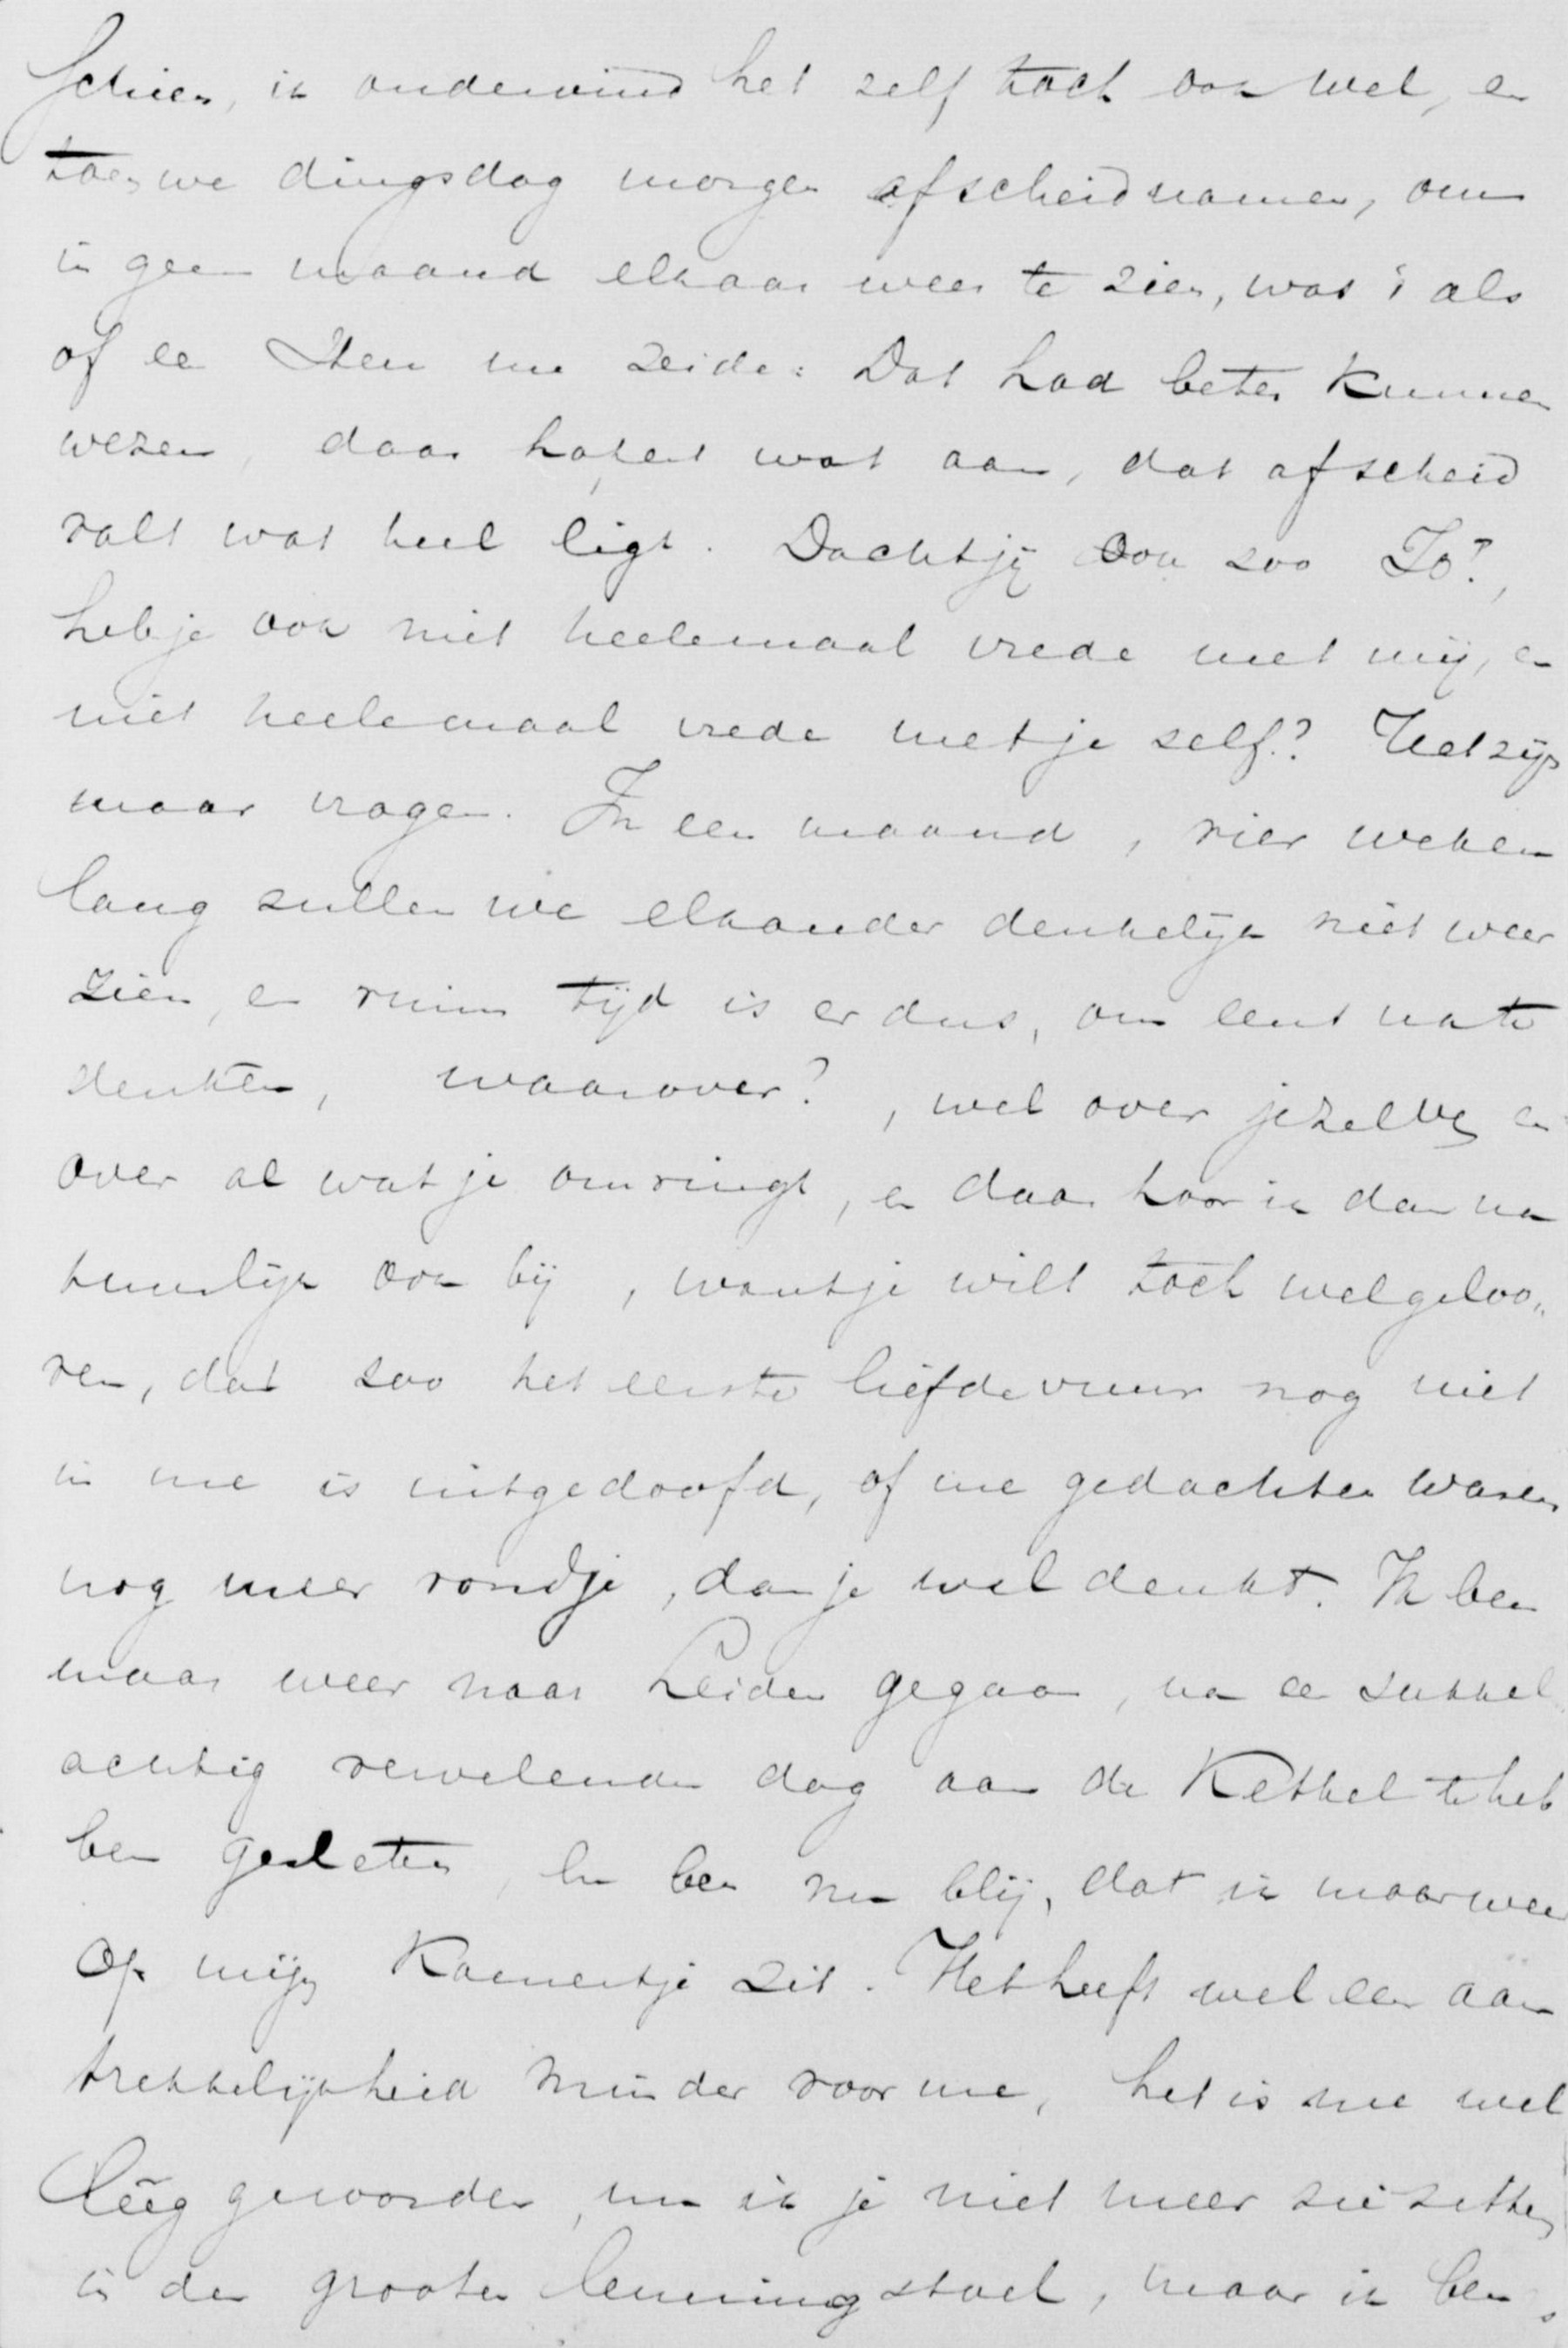 schien, ik ondervind het zelf toch ook wel, en
toen we dingsdag morgen afscheid namen, om
in geen maand elkaar weer te zien, was 't als
of een stem me zeide: Dat had beter kunnen
wezen, daar hapert wat aan, dat afscheid
valt wat heel ligt. Dacht jij ook zoo Jo?,
heb je ook niet heelemaal vrede met mij, en
niet heelemaal vrede met je zelf? Het zijn
maar vragen. In een maand, vier weken
lang zullen we elkander denkelijk niet weer
zien, en ruim tijd is er dus, om eens na te
denken, waarover?, wel over jezelve en
over al wat je omringt, en daar hoor ik dan na
tuurlijk ook bij, want je wilt toch wel geloo„
ven, dat zoo het eerste liefdevuur nog niet
in me is uitgedoofd, of me gedachten waren
nog meer rond je, dan je wel denkt. Ik ben
maar weer naar Leiden gegaan, na een sukkel
achtig vervelenden dag aan de Kethel te heb
ben gesleten, en ben nu blij, dat ik maar weer
op mijn kamertje zit. Het heeft wel een aan
trekkelijkheid minder voor me, het is me wel
leeg geworden, nu ik je niet meer zie zitten
in den grooten leuningstoel, maar ik ben